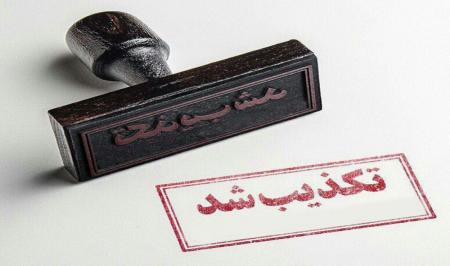 تکذیب شد